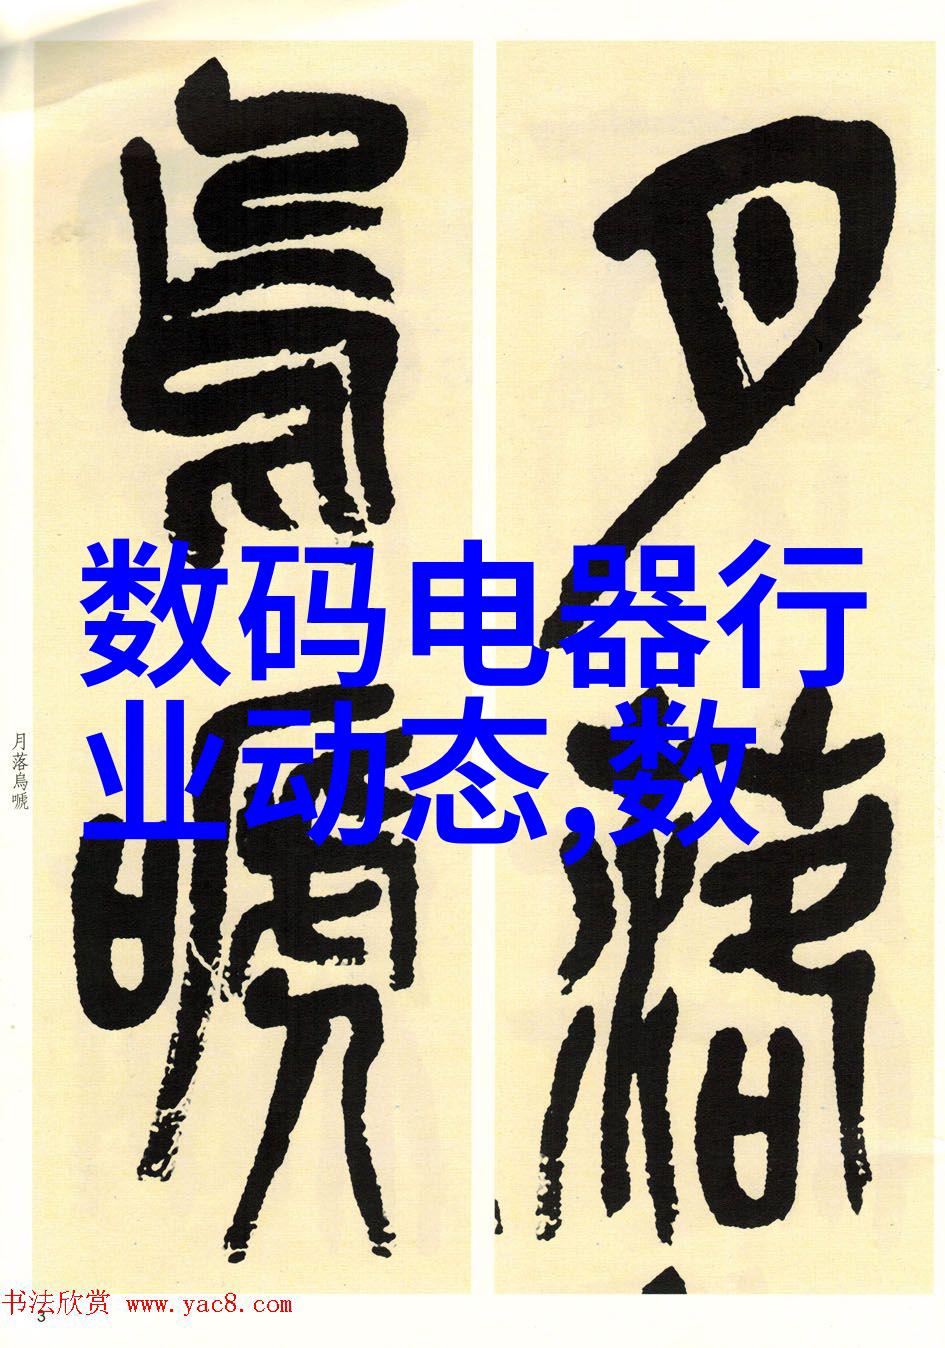 月落烏嗁
数码电器行
业动态,数
月落
烏嗁
书法欣赏 www.yac8.com
3